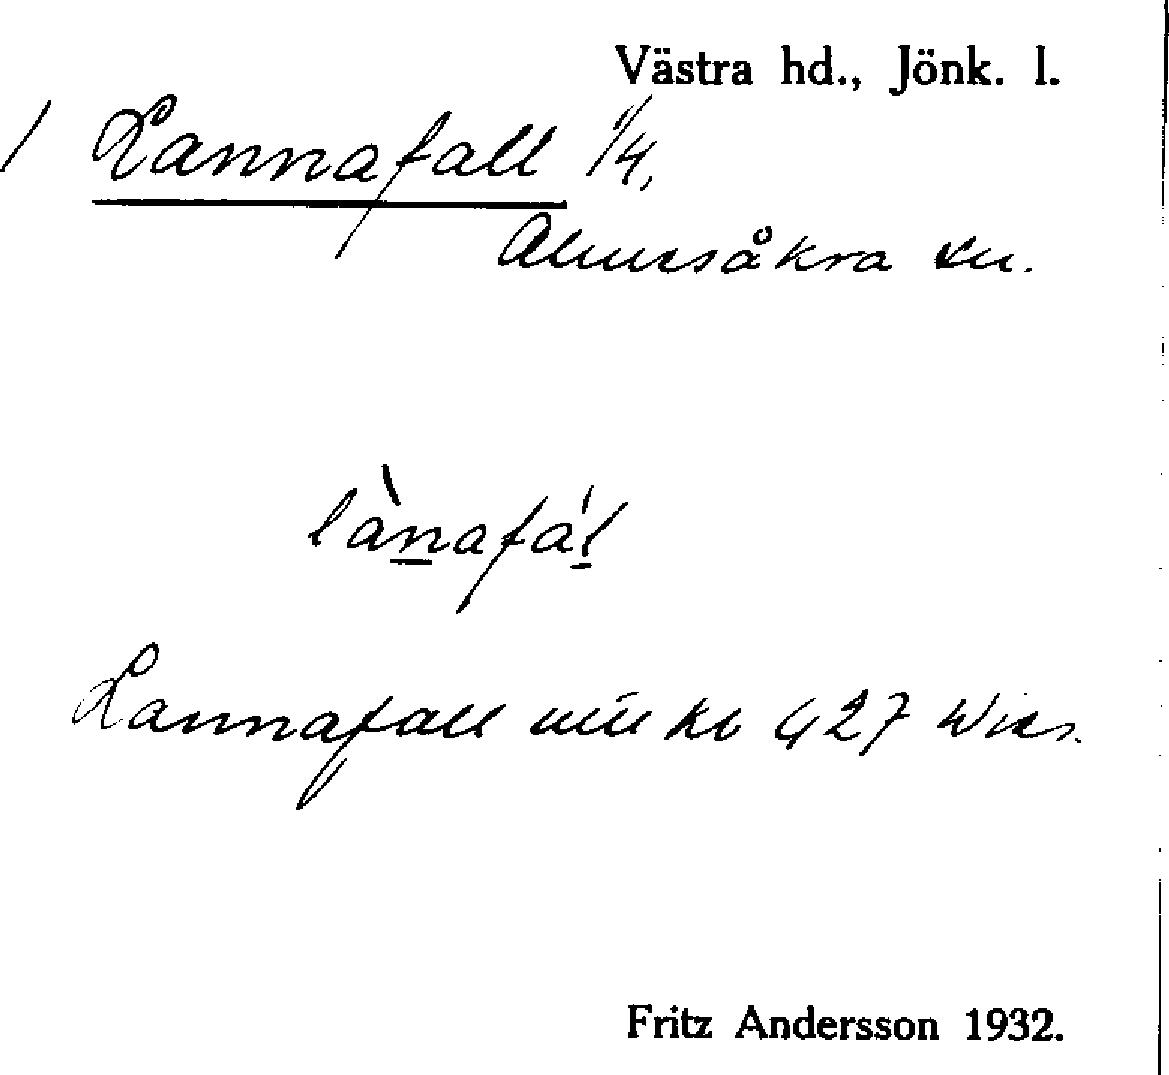 Västra hd., Jönk. l.
/ Lannafall 1/4,
Almesåkra sn.
lànafál
Lannafall mü kb 427 Wies.
Fritz Andersson 1932.